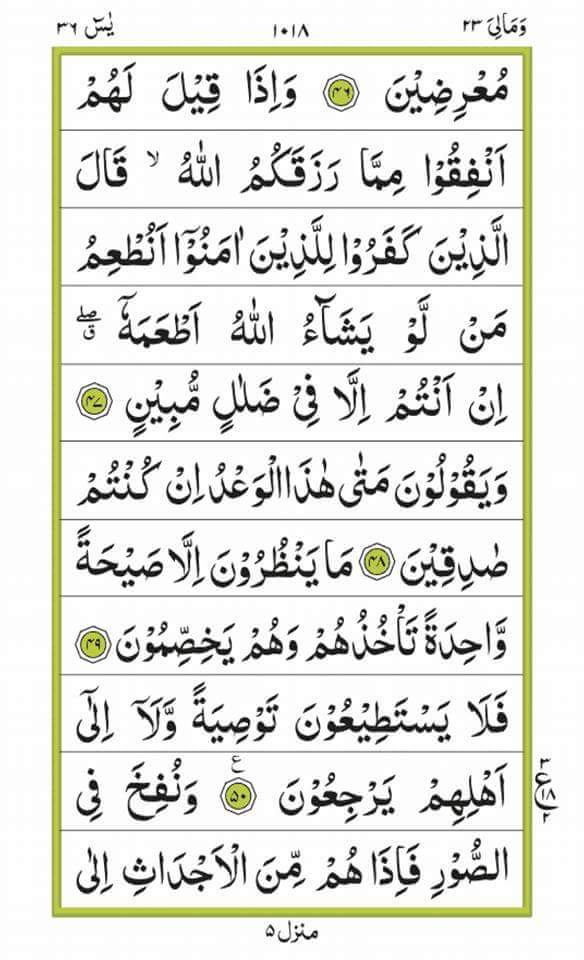 وَمَالِیَ ۲۳ ۱۰۱۸ یٰسٓ ۳۶
مُعْرِضِيْنَ ﴿۴۶﴾ وَاِذَا قِيْلَ لَهُمْ
اَنْفِقُوْا مِمَّا رَزَقَكُمُ اللّٰهُ ۙ قَالَ
الَّذِيْنَ كَفَرُوْا لِلَّذِيْنَ اٰمَنُوْٓا اَنُطْعِمُ
مَنْ لَّوْ يَشَآءُ اللّٰهُ اَطْعَمَهٗٓ ۖق
اِنْ اَنْتُمْ اِلَّا فِيْ ضَلٰلٍ مُّبِيْنٍ ﴿۴۷﴾
وَيَقُوْلُوْنَ مَتٰى هٰذَا الْوَعْدُ اِنْ كُنْتُمْ
صٰدِقِيْنَ ﴿۴۸﴾ مَا يَنْظُرُوْنَ اِلَّا صَيْحَةً
وَّاحِدَةً تَاْخُذُهُمْ وَهُمْ يَخِصِّمُوْنَ ﴿۴۹﴾
فَلَا يَسْتَطِيْعُوْنَ تَوْصِيَةً وَّلَآ اِلٰٓى
اَهْلِهِمْ يَرْجِعُوْنَ ﴿۵۰﴾ ع وَنُفِخَ فِي
۳ ع ۱۸ ۲
الصُّوْرِ فَاِذَا هُمْ مِّنَ الْاَجْدَاثِ اِلٰى
منزل ۵